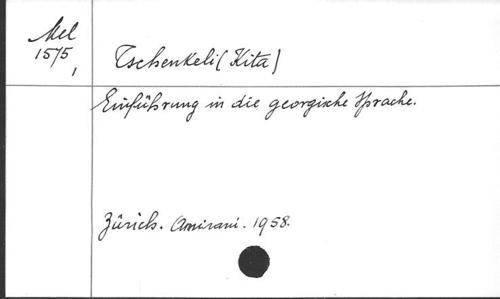 Mel
1575,
Tschenkeli (Kita)
Einführung in die georgische Sprache.
Zürich. Amirani. 1958.